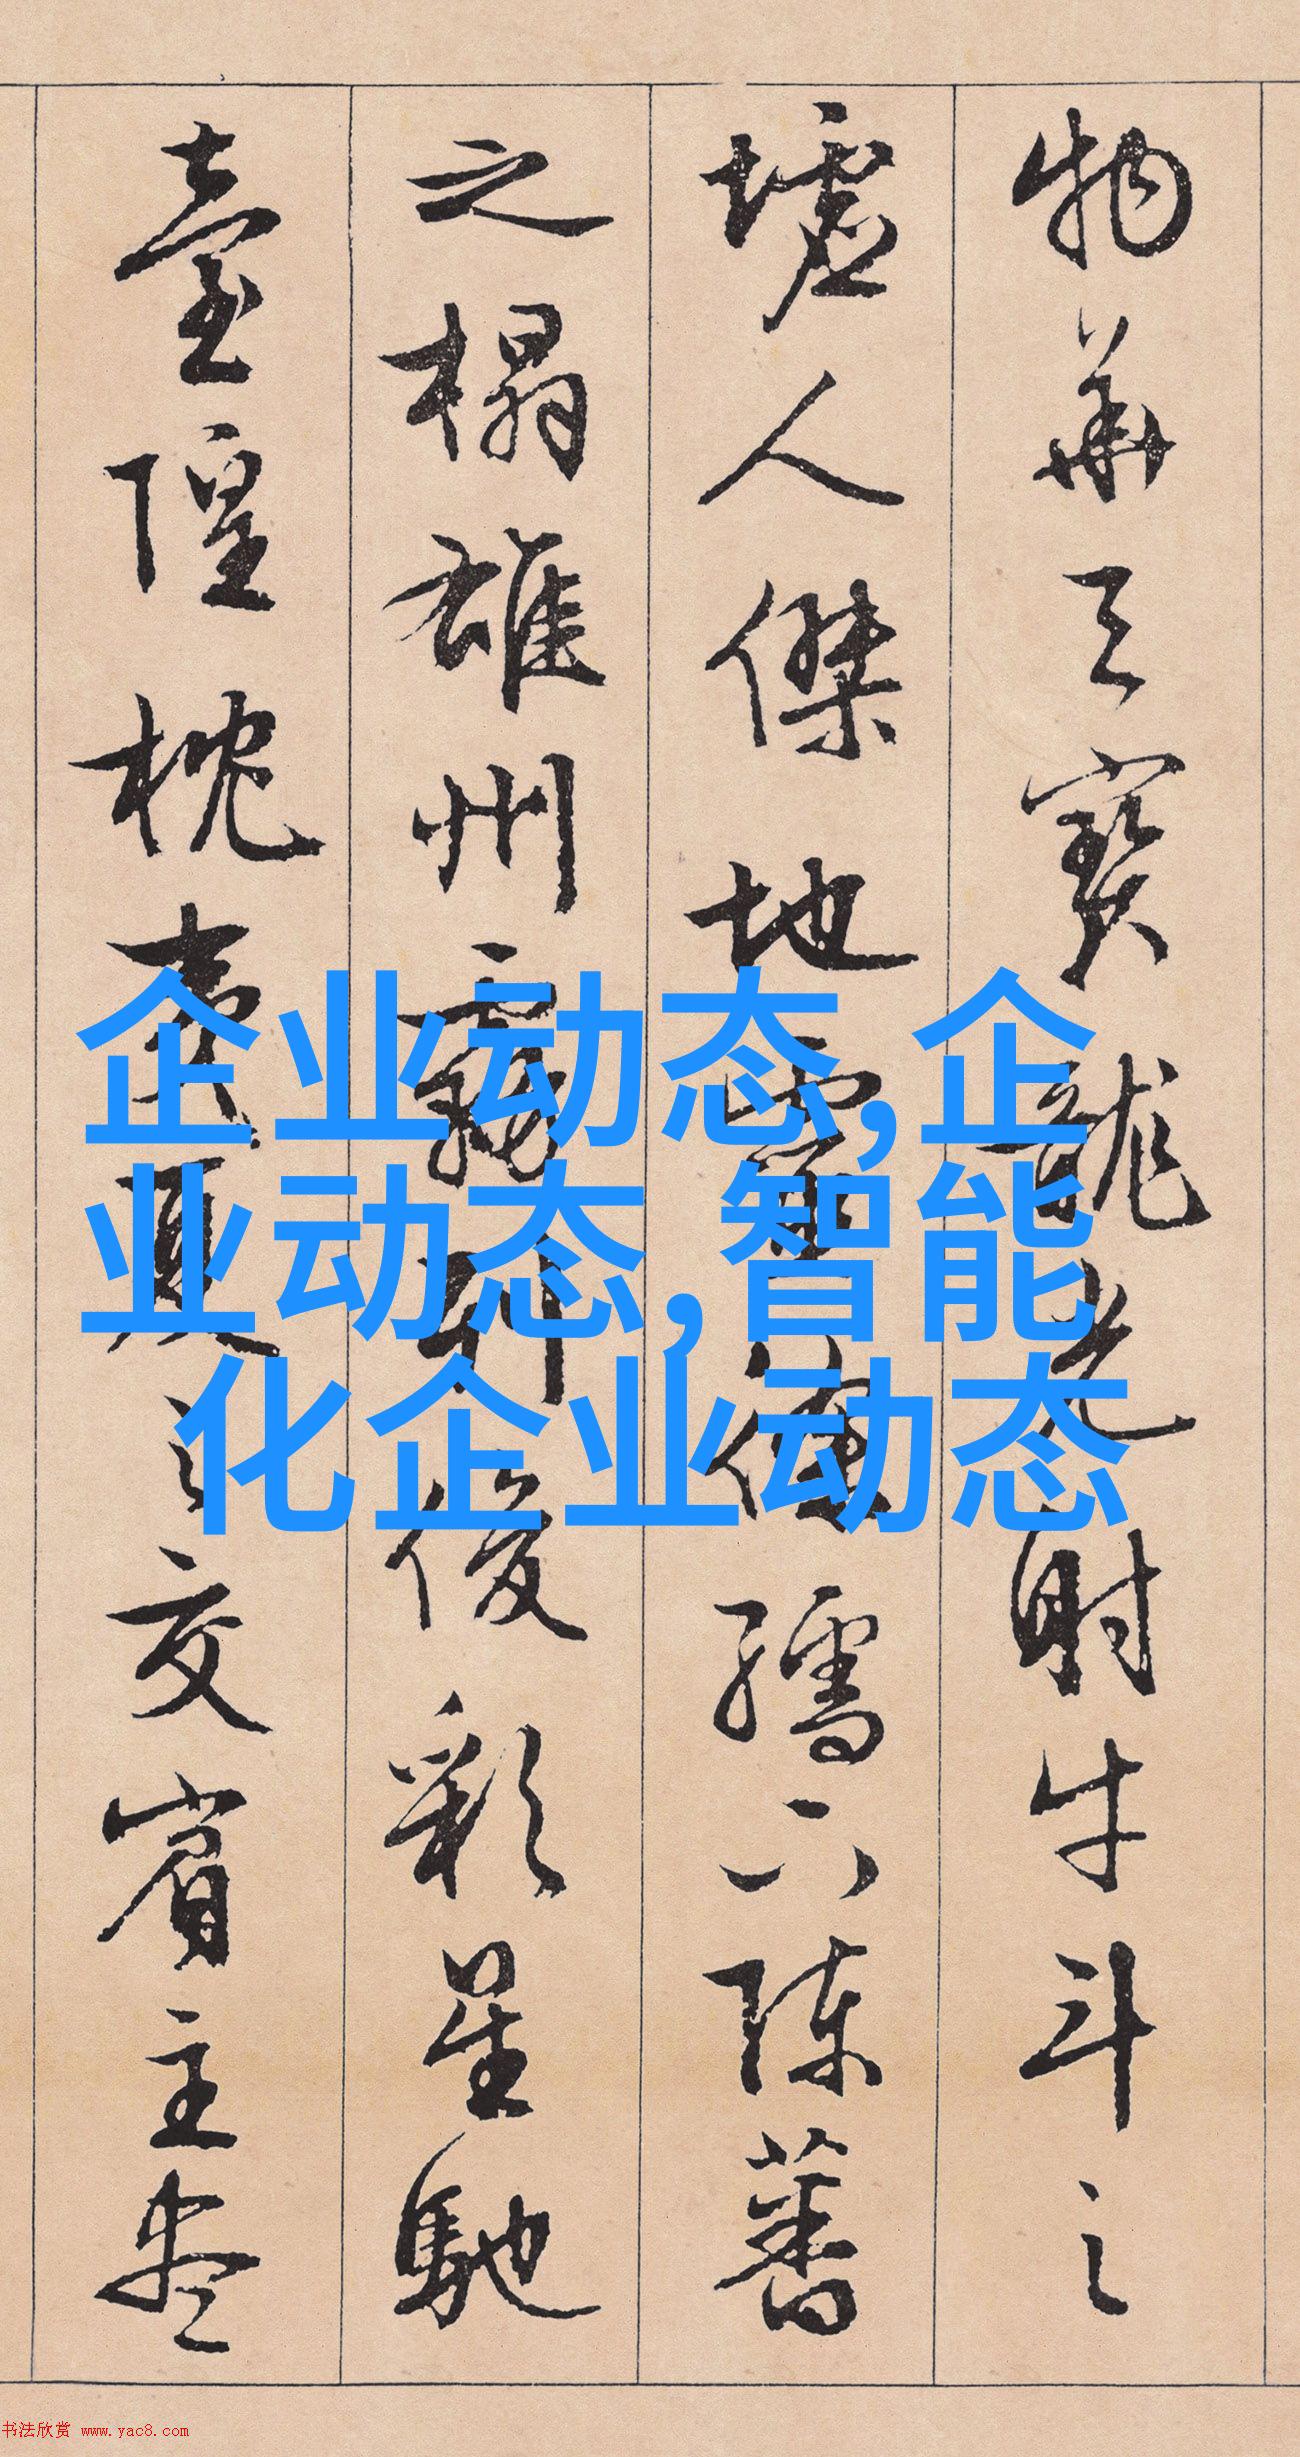 物華天寶龍光射牛斗之
墟人傑地靈徐孺下陳蕃
之榻雄州霧列俊彩星馳
臺隍枕夷夏之交賓主盡
企业动态,企
业动态,智能
化企业动态
书法欣赏 www.yac8.com